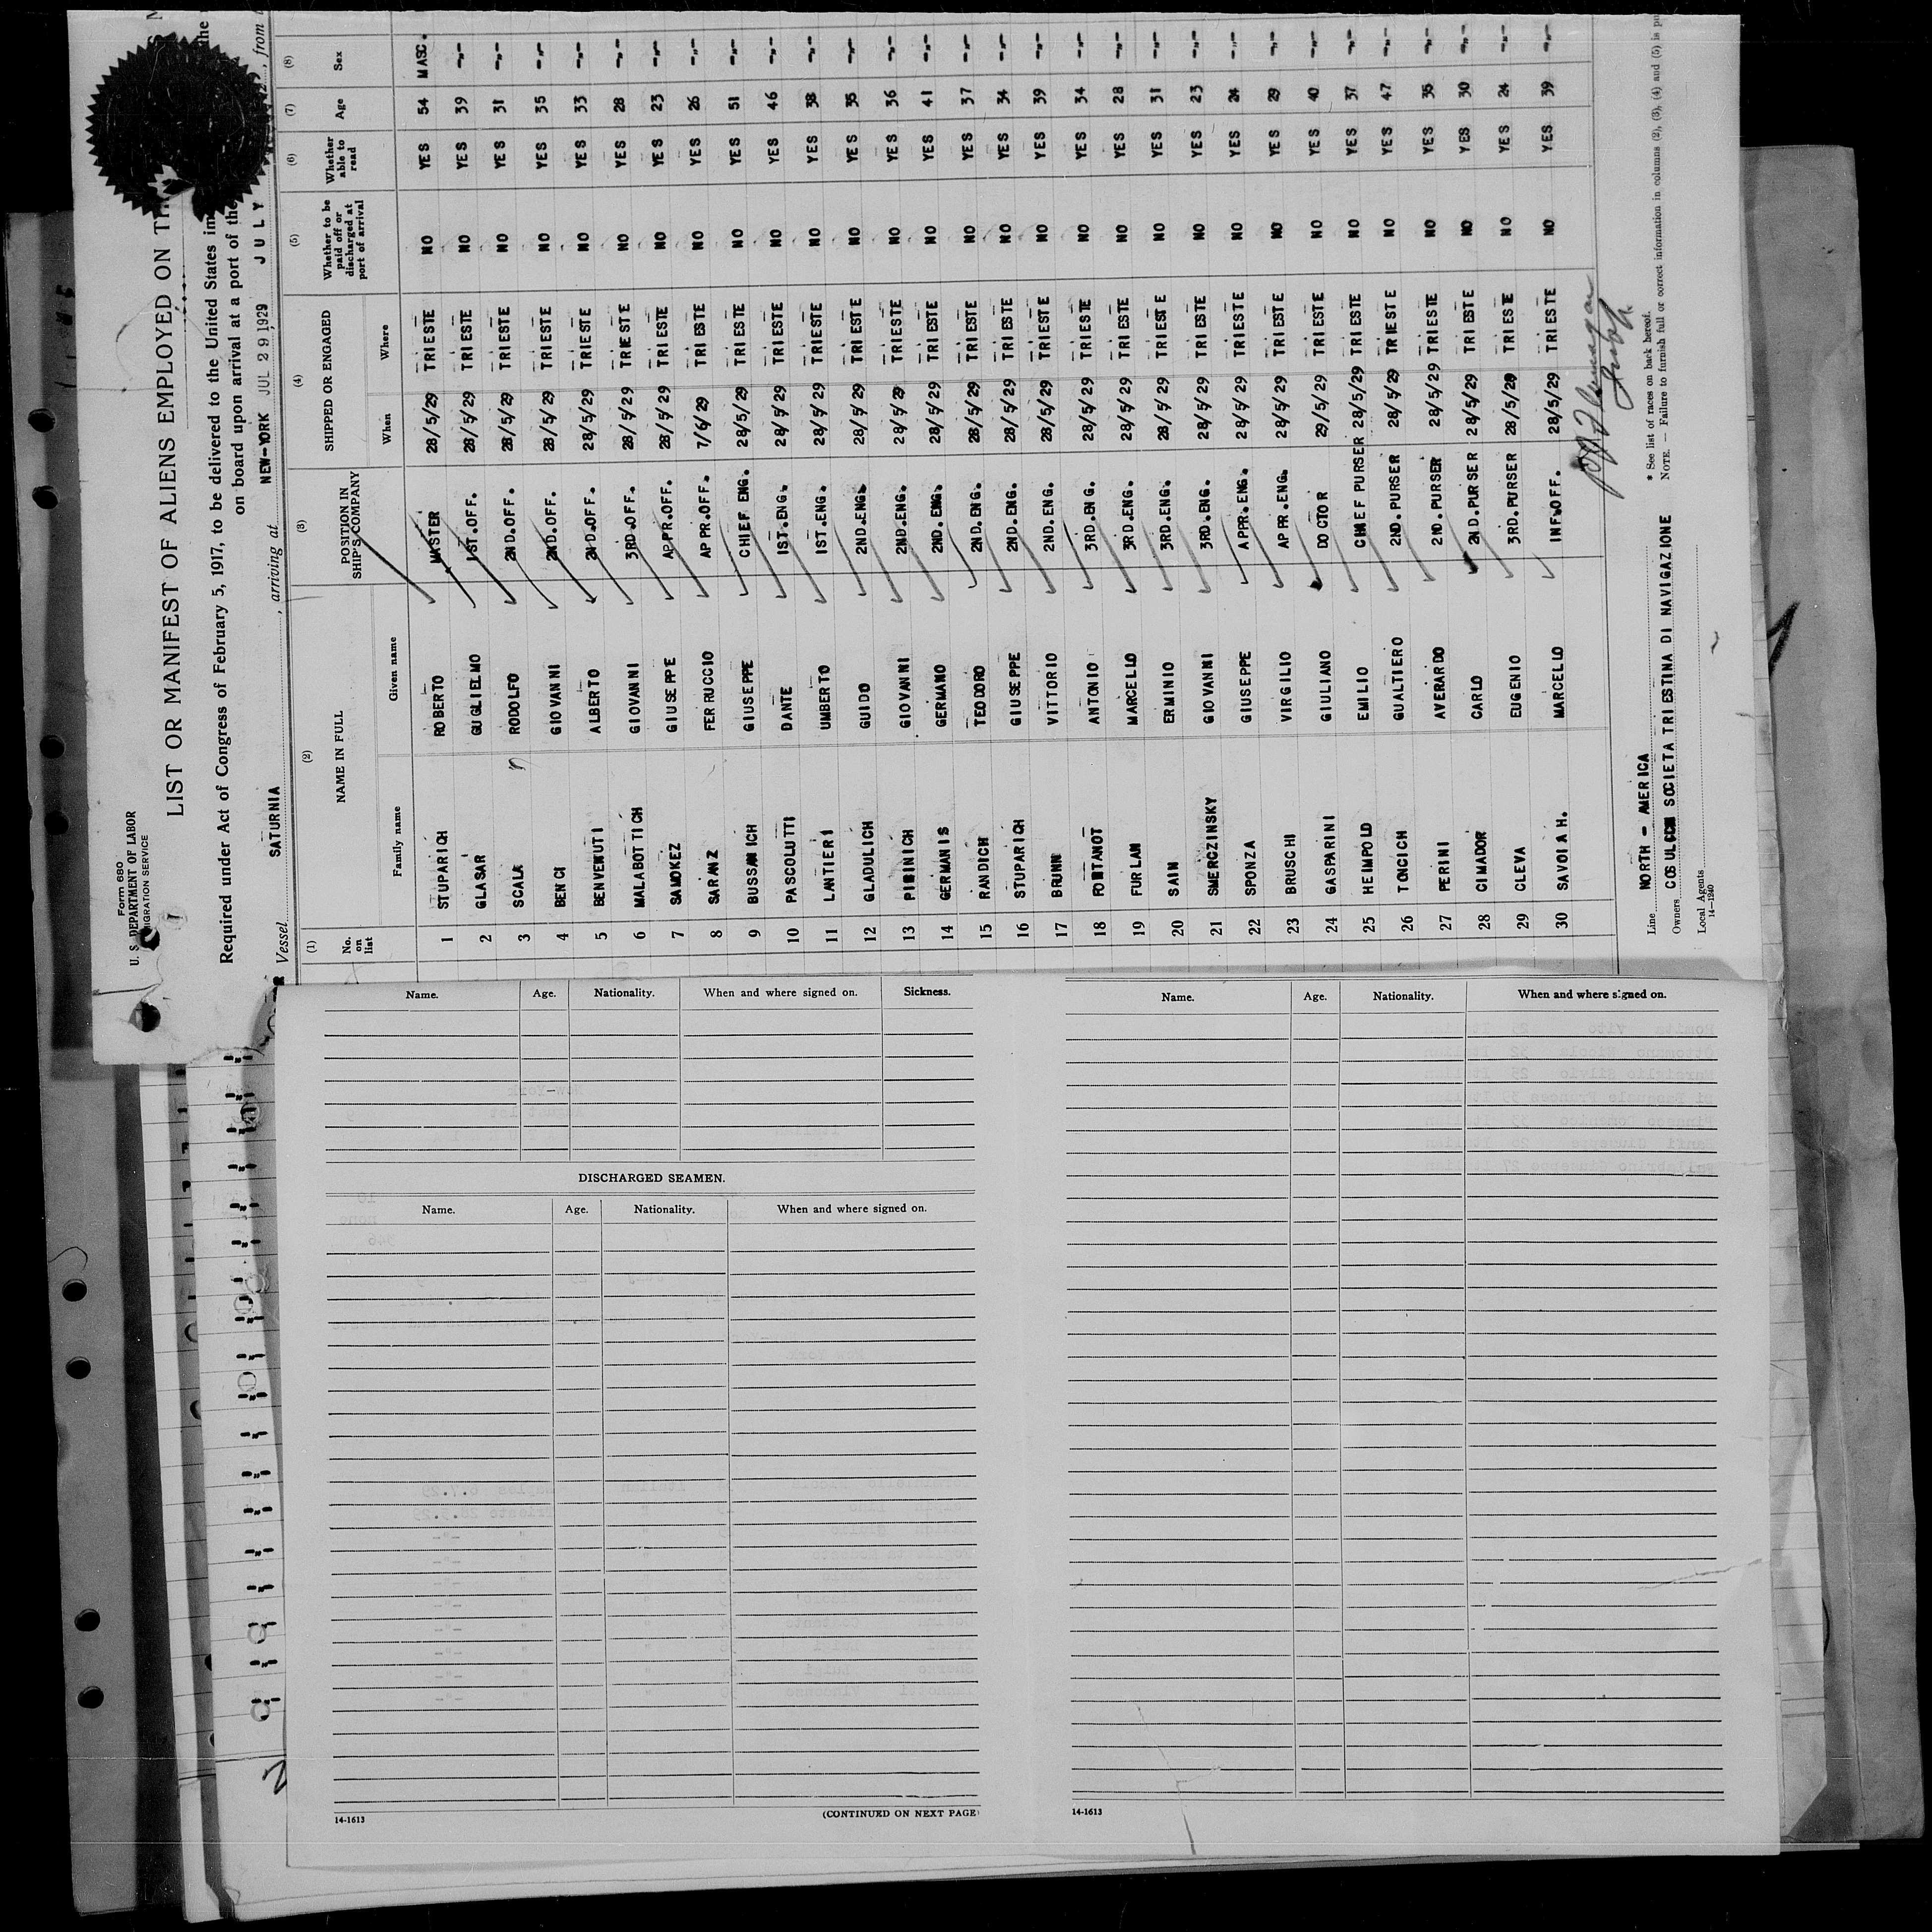 Form 680
U. S. DEPARTMENT OF LABOR
IMMIGRATION SERVICE
LIST OR MANIFEST OF ALIENS EMPLOYED ON TH
Required under Act of Congress of February 5, 1917, to be delivered to the United States im
on board upon arrival at a port of the
Vessel SATURNIA, arriving at NEW-YORK JUL 29 1929 JULY 29, from
(1) (2) (3) (4) (5) (6) (7) (8)
No. on list NAME IN FULL POSITION IN SHIP'S COMPANY SHIPPED OR ENGAGED Whether to be paid off or discharged at port of arrival Whether able to read Age Sex
Family name Given name When Where
1 STUPARICH ROBERTO MASTER 28/5/29 TRIESTE NO YES 54 MASC.
2 GLASAR GUGLIELMO 1ST.OFF. 28/5/29 TRIESTE NO YES 39 -"-
3 SCALA RODOLFO 2ND.OFF. 28/5/29 TRIESTE NO YES 31 -"-
4 BENCI GIOVANNI 2ND.OFF. 28/5/29 TRIESTE NO YES 35 -"-
5 BENVENUTI ALBERTO 2ND.OFF. 28/5/29 TRIESTE NO YES 33 -"-
6 MALABOTTICH GIOVANNI 3RD.OFF. 28/5/29 TRIESTE NO YES 28 -"-
7 SAMOKEZ GIUSEPPE APPR.OFF. 28/5/29 TRIESTE NO YES 23 -"-
8 SARANZ FERRUCCIO APPR.OFF. 7/6/29 TRIESTE NO YES 26 -"-
9 BUSSANICH GIUSEPPE CHIEF ENG. 28/5/29 TRIESTE NO YES 51 -"-
10 PASCOLUTTI DANTE 1ST.ENG. 28/5/29 TRIESTE NO YES 46 -"-
11 LANTIERI UMBERTO 1ST.ENG. 28/5/29 TRIESTE NO YES 38 -"-
12 GLADULICH GUIDO 2ND.ENG. 28/5/29 TRIESTE NO YES 35 -"-
13 PIRINICH GIOVANNI 2ND.ENG. 28/5/29 TRIESTE NO YES 36 -"-
14 GERMANIS GERMANO 2ND.ENG. 28/5/29 TRIESTE NO YES 41 -"-
15 RANDICH TEODORO 2ND.ENG. 28/5/29 TRIESTE NO YES 37 -"-
16 STUPARICH GIUSEPPE 2ND.ENG. 28/5/29 TRIESTE NO YES 34 -"-
17 BRUNN VITTORIO 2ND.ENG. 28/5/29 TRIESTE NO YES 39 -"-
18 FONTANOT ANTONIO 3RD.ENG. 28/5/29 TRIESTE NO YES 34 -"-
19 FURLAN MARCELLO 3RD.ENG. 28/5/29 TRIESTE NO YES 28 -"-
20 SAIN ERMINIO 3RD.ENG. 28/5/29 TRIESTE NO YES 31 -"-
21 SMERCZINSKY GIOVANNI 3RD.ENG. 28/5/29 TRIESTE NO YES 23 -"-
22 SPONZA GIUSEPPE APPR.ENG. 28/5/29 TRIESTE NO YES 24 -"-
23 BRUSCHI VIRGILIO APPR.ENG. 28/5/29 TRIESTE NO YES 29 -"-
24 GASPARINI GIULIANO DOCTOR 29/5/29 TRIESTE NO YES 40 -"-
25 HEIMPOLD EMILIO CHIEF PURSER 28/5/29 TRIESTE NO YES 37 -"-
26 TONCICH GUALTIERO 2ND.PURSER 28/5/29 TRIESTE NO YES 47 -"-
27 PERINI AVERARDO 2ND.PURSER 28/5/29 TRIESTE NO YES 35 -"-
28 CIMADOR CARLO 2ND.PURSER 28/5/29 TRIESTE NO YES 30 -"-
29 CLEVA EUGENIO 3RD.PURSER 28/5/29 TRIESTE NO YES 24 -"-
30 SAVOIA H. MARCELLO INF.OFF. 28/5/29 TRIESTE NO YES 39 -"-
Line NORTH - AMERICA
Owners COSULICH SOCIETA TRIESTINA DI NAVIGAZIONE
Local Agents
14-1240
* See list of races on back hereof.
NOTE. — Failure to furnish full or correct information in columns (2), (3), (4) and (5) is pu
Name. Age. Nationality. When and where signed on. Sickness.
DISCHARGED SEAMEN.
Name. Age. Nationality. When and where signed on.
14-1613
(CONTINUED ON NEXT PAGE)
Name. Age. Nationality. When and where signed on.
14-1613